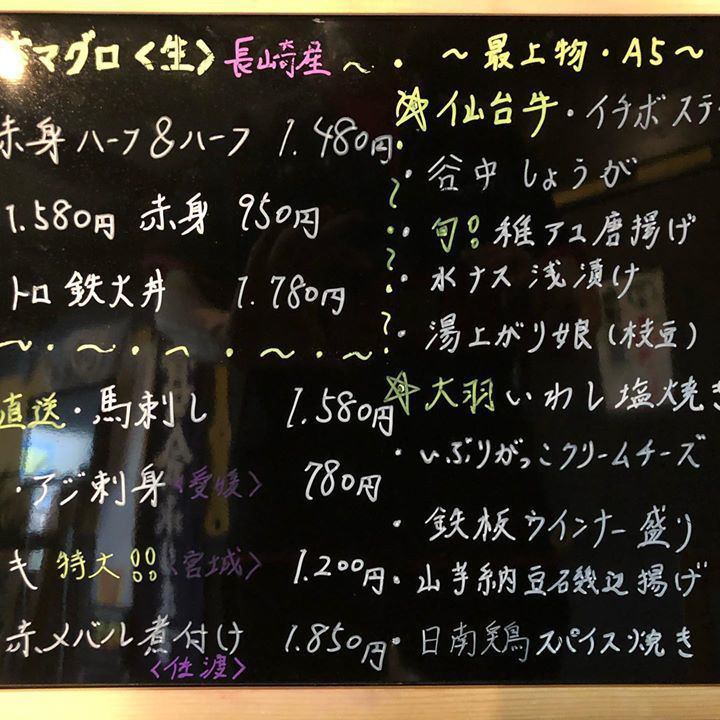 マグロ〈生〉長崎産〜
赤身ハーフ&ハーフ 1.480円
1.580円 赤身 950円
トロ鉄火丼 1.780円
直送・馬刺し 1.580円
・アジ刺身〈愛媛〉 780円
キ 特大!!〈宮城〉 1.200円
赤メバル煮付け 1.850円
〈佐渡〉
〜最上物・A5〜
☆仙台牛・イチボステ
・谷中しょうが
・旬!!稚アユ唐揚げ
・水ナス浅漬け
・湯上がり娘(枝豆)
☆大羽いわし塩焼き
・いぶりがっこクリームチーズ
・鉄板ウインナー盛り
・山芋納豆石磯辺揚げ
・日南鶏スパイス焼き